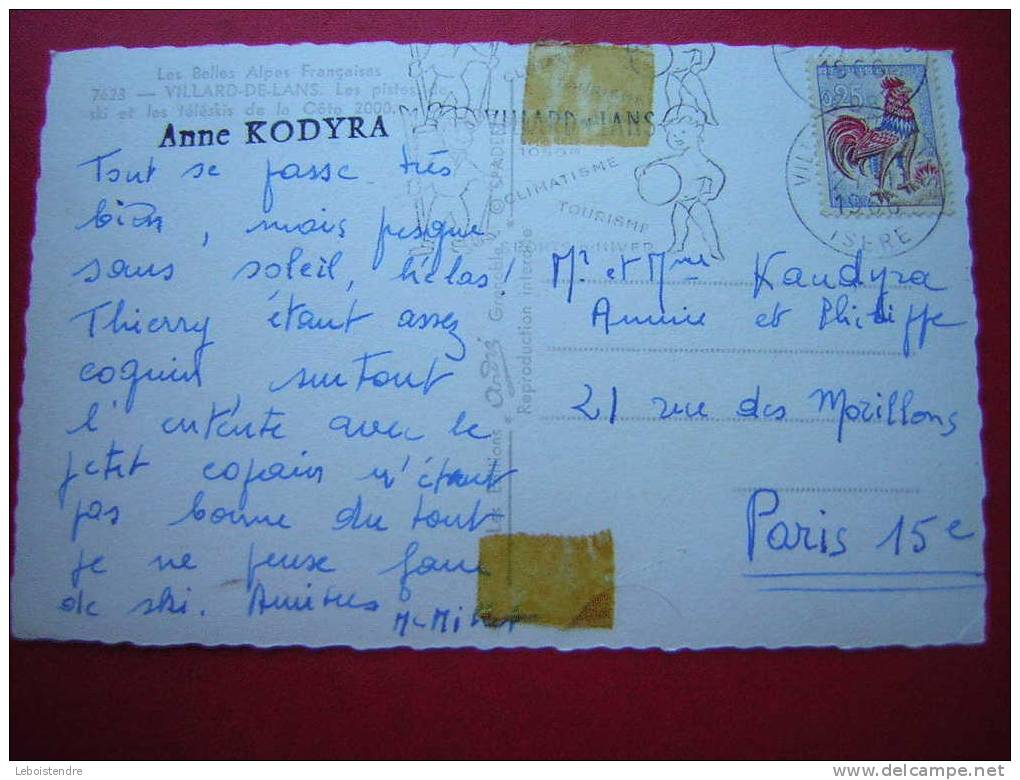 Les Belles Alpes Françaises
7623 — VILLARD-DE-LANS. Les pistes de
ski et les téléskis de la Côte 2000.
Anne KODYRA
Tout se passe très
bien, mais presque
sans soleil, hélas!
Thierry étant assez
coquin surtout
l'entente avec le
petit copain n'étant
pas bonne du tout
je ne pense faire
de ski. Amitiés
Les Editions "André" Grenoble
Reproduction interdite
VILLARD DE LANS
CLIMATISME
TOURISME
SPORTS D'HIVER
0,25
ISERE
Mr et Mme Kaudyra
Annie et Philippe
21 rue des Morillons
Paris 15e
Leboistendre
delcampe.net